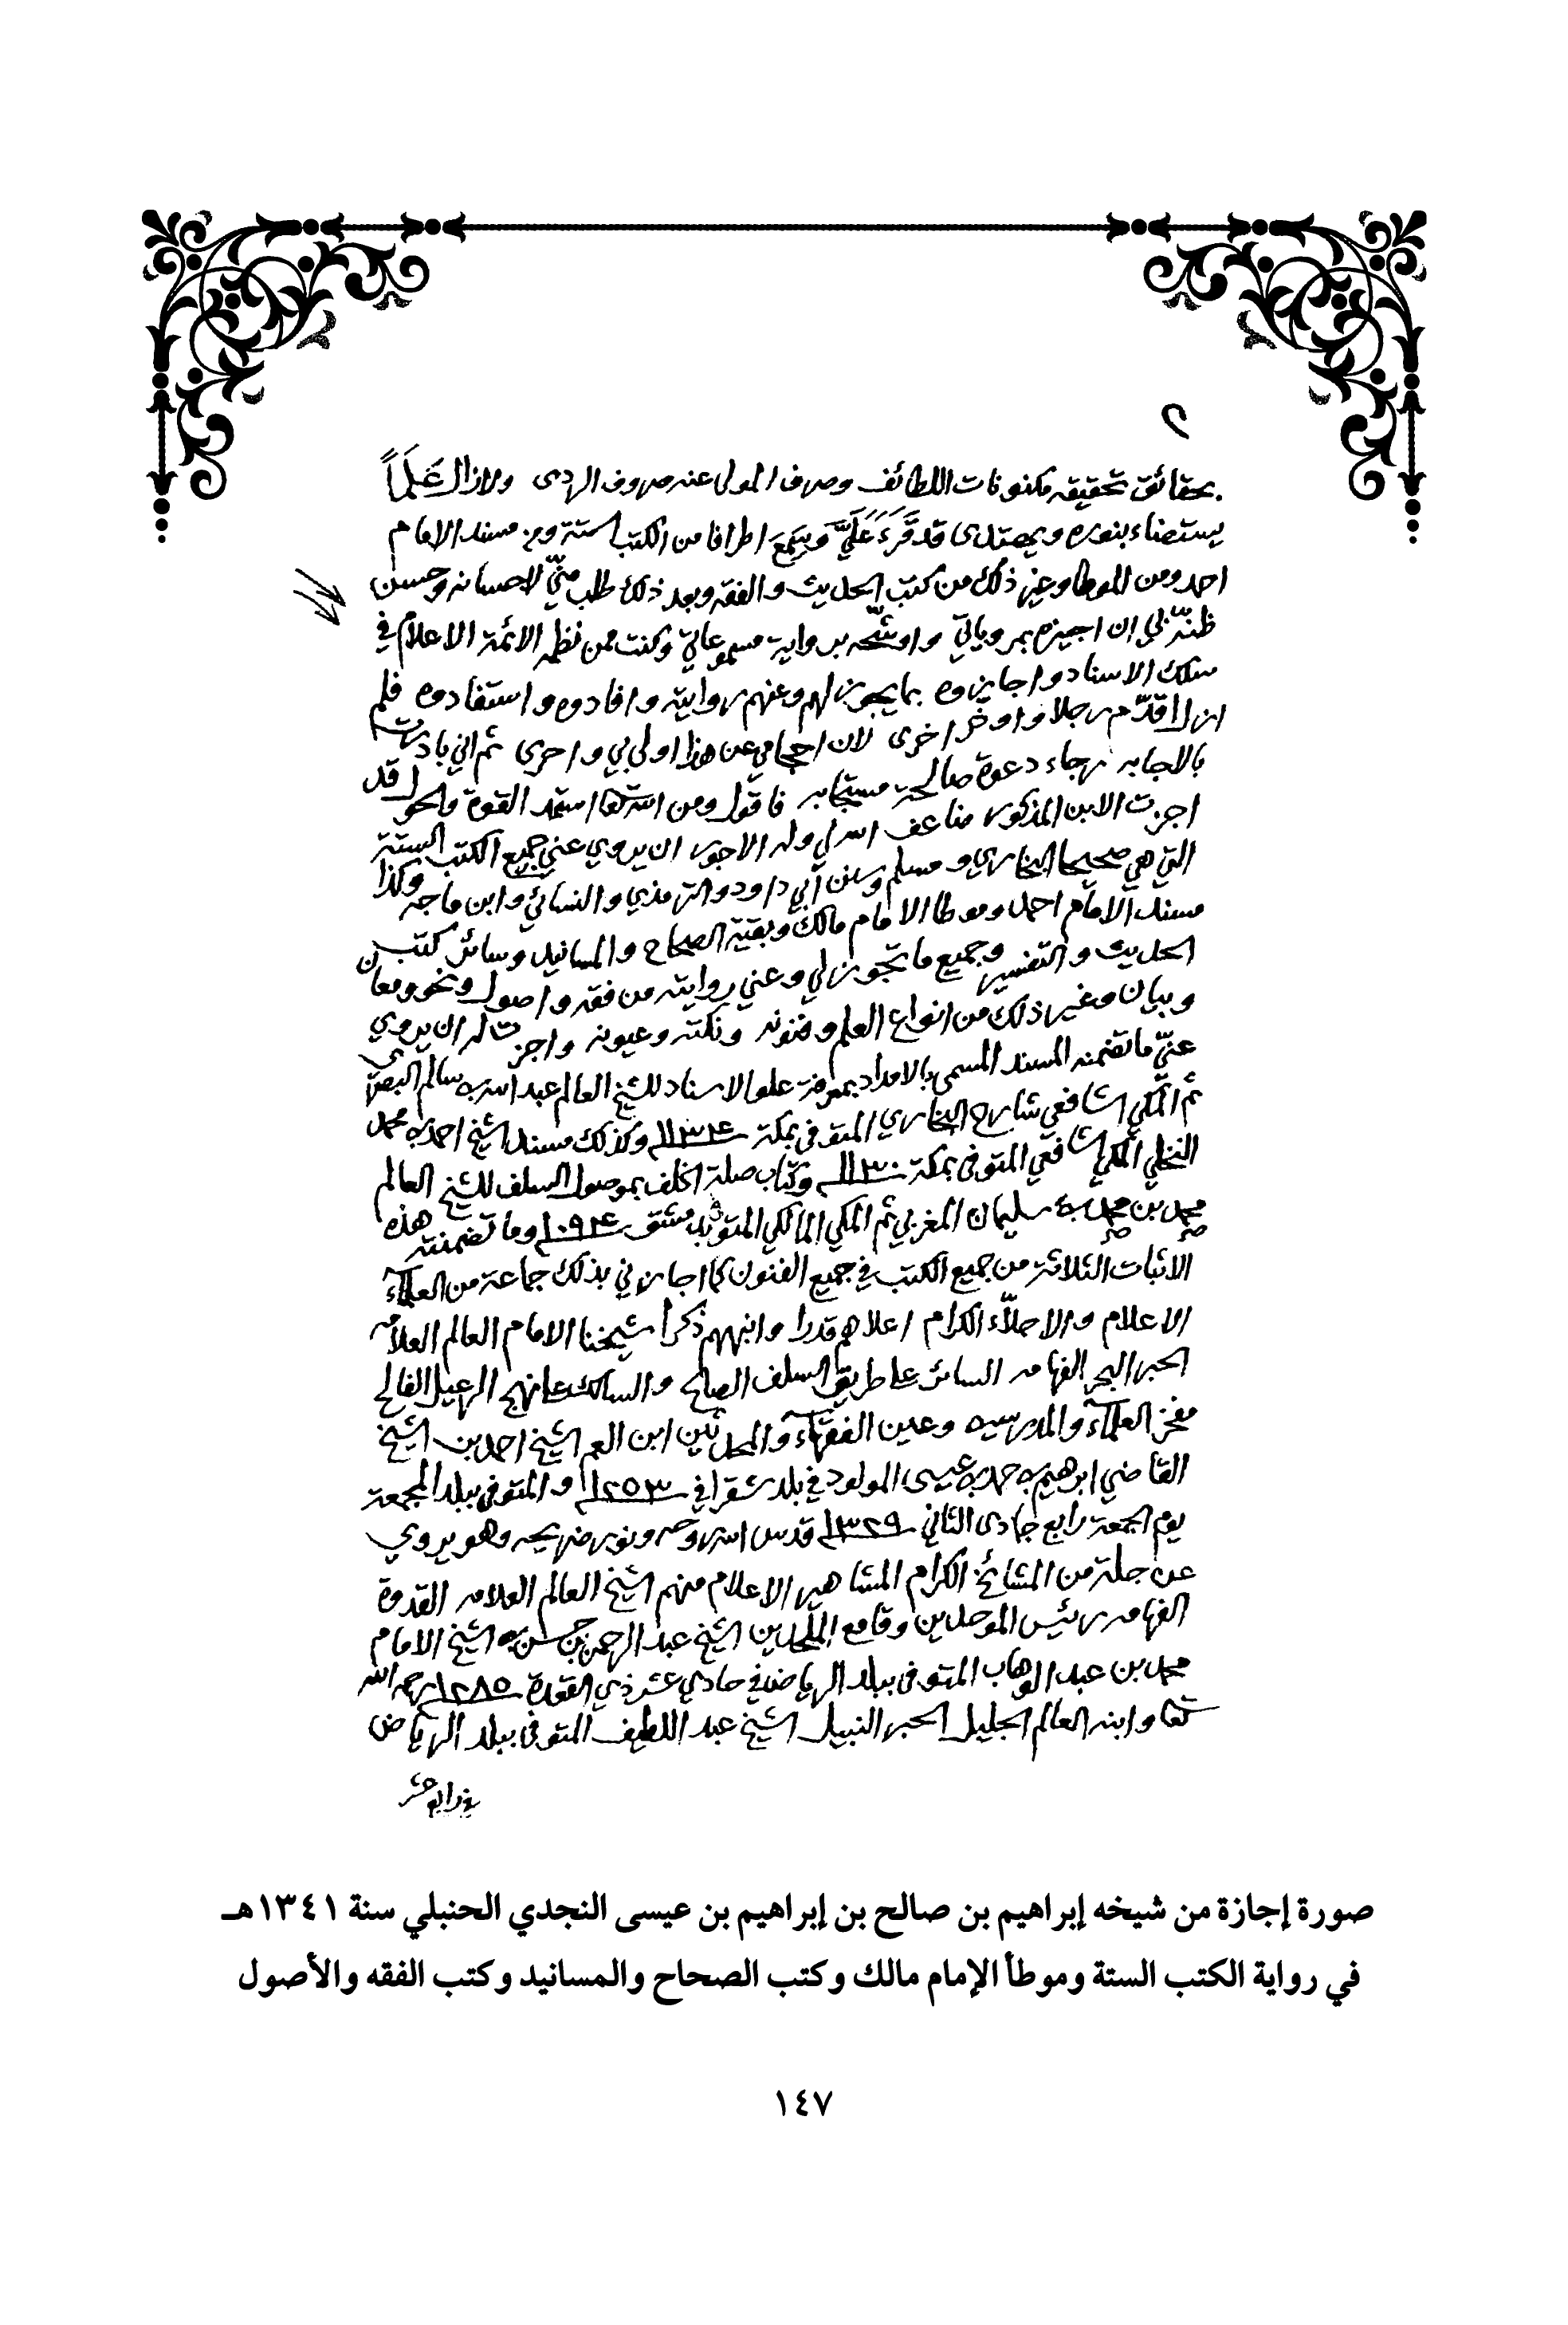 ٢
بحقائق تحقيقه مكنونات اللطائف وصرف المولى عنه صروف الردى ولازال عَلَماً
يستضاء بنوره ويهتدى قد قَرَءَ عَلَيَّ وسَمِعَ اطرافا من الكتب الستة ومن مسند الامام
احمد ومن الموطا وغير ذلك من كتب الحديث والفقه وبعد ذلك طلب منّي لاحسانه وحسن
ظنّه بي ان اجيزه بمروياتي واوشّحه برواية مسموعاتي وكنت ممن نظمه الائمة الاعلام في
سلك الاسناد واجازوه بما يجوز لهم وعنهم روايته وافادوه واستفادوه فلم
ازل اقدّم رجلا واوخر اخرى لان احجامي عن هذا اولى بي واحرى ثم اني بادرت
بالاجابه رجاء دعوة صالحة مستجابه فاقول ومن الله تعالى استمد القوة والحول قد
اجزت الابن المذكور ضاعف الله لي وله الاجور ان يروي عني جميع الكتب الستة
التي هي صحيحا البخاري ومسلم وسنن أبي داود والترمذي والنسائي وابن ماجه وكذا
مسند الامام احمد وموطا الامام مالك وبقية الصحاح والمسانيد وسائر كتب
الحديث والتفسير وجميع ما تجوز لي وعني روايته من فقه واصول ونحو ومعان
وبيان وغير ذلك من انواع العلم وفنونه ونكته وعيونه واجزت له ان يروي
عنّي ما تضمنه المسند المسمى بالامداد بمعرفة علو الاسناد للشيخ العالم عبد الله بن سالم البصري
ثم المكي الشافعي شارح البخاري المتوفى بمكة ١١٣٤ وكذلك مسند الشيخ احمد بن محمد
النخلي المكي الشافعي المتوفى بمكة ١١٣٠ وكتاب صلة الخلف بموصول السلف للشيخ العالم
محمد بن محمد بن سليمان المغربي ثم المكي المالكي المتوفى بدمشق ١٠٩٤ وما تضمنته هذه
الاثبات الثلاثة من جميع الكتب في جميع الفنون كما اجازني بذلك جماعة من العلمآء
الاعلام والاجلّاء الكرام اعلاهم قدرا وانبههم ذكرا شيخنا الامام العالم العلامه
الحبر البحر الفهامه السائر على طريق السلف الصالح والسالك على نهج الرعيل الفالح
مفخر العلمآء والمدرسين وعين الفقهآء والمحدثين ابن العم الشيخ احمد بن الشيخ
القاضي ابرهيم بن حمد بن عيسى المولود في بلد شقرا في ١٢٥٣ والمتوفى ببلد المجمعة
يوم الجمعة رابع جمادى الثاني ١٣٢٩ قدس الله روحه ونور ضريحه وهو يروي
عن جملة من المشائخ الكرام المشاهير الاعلام منهم الشيخ العالم العلامه القدوة
الفهامه رئيس الموحدين وقامع الملحدين الشيخ عبد الرحمن بن حسن بن الشيخ الامام
محمد بن عبد الوهاب المتوفى ببلد الرياض في حادي عشر ذي القعدة ١٢٨٥ رحمه الله
تعالى وابنه العالم الجليل الحبر النبيل الشيخ عبد اللطيف المتوفى ببلد الرياض
في رابع عشر
صورة إجازة من شيخه إبراهيم بن صالح بن إبراهيم بن عيسى النجدي الحنبلي سنة ١٣٤١هـ
في رواية الكتب الستة وموطأ الإمام مالك وكتب الصحاح والمسانيد وكتب الفقه والأصول
١٤٧